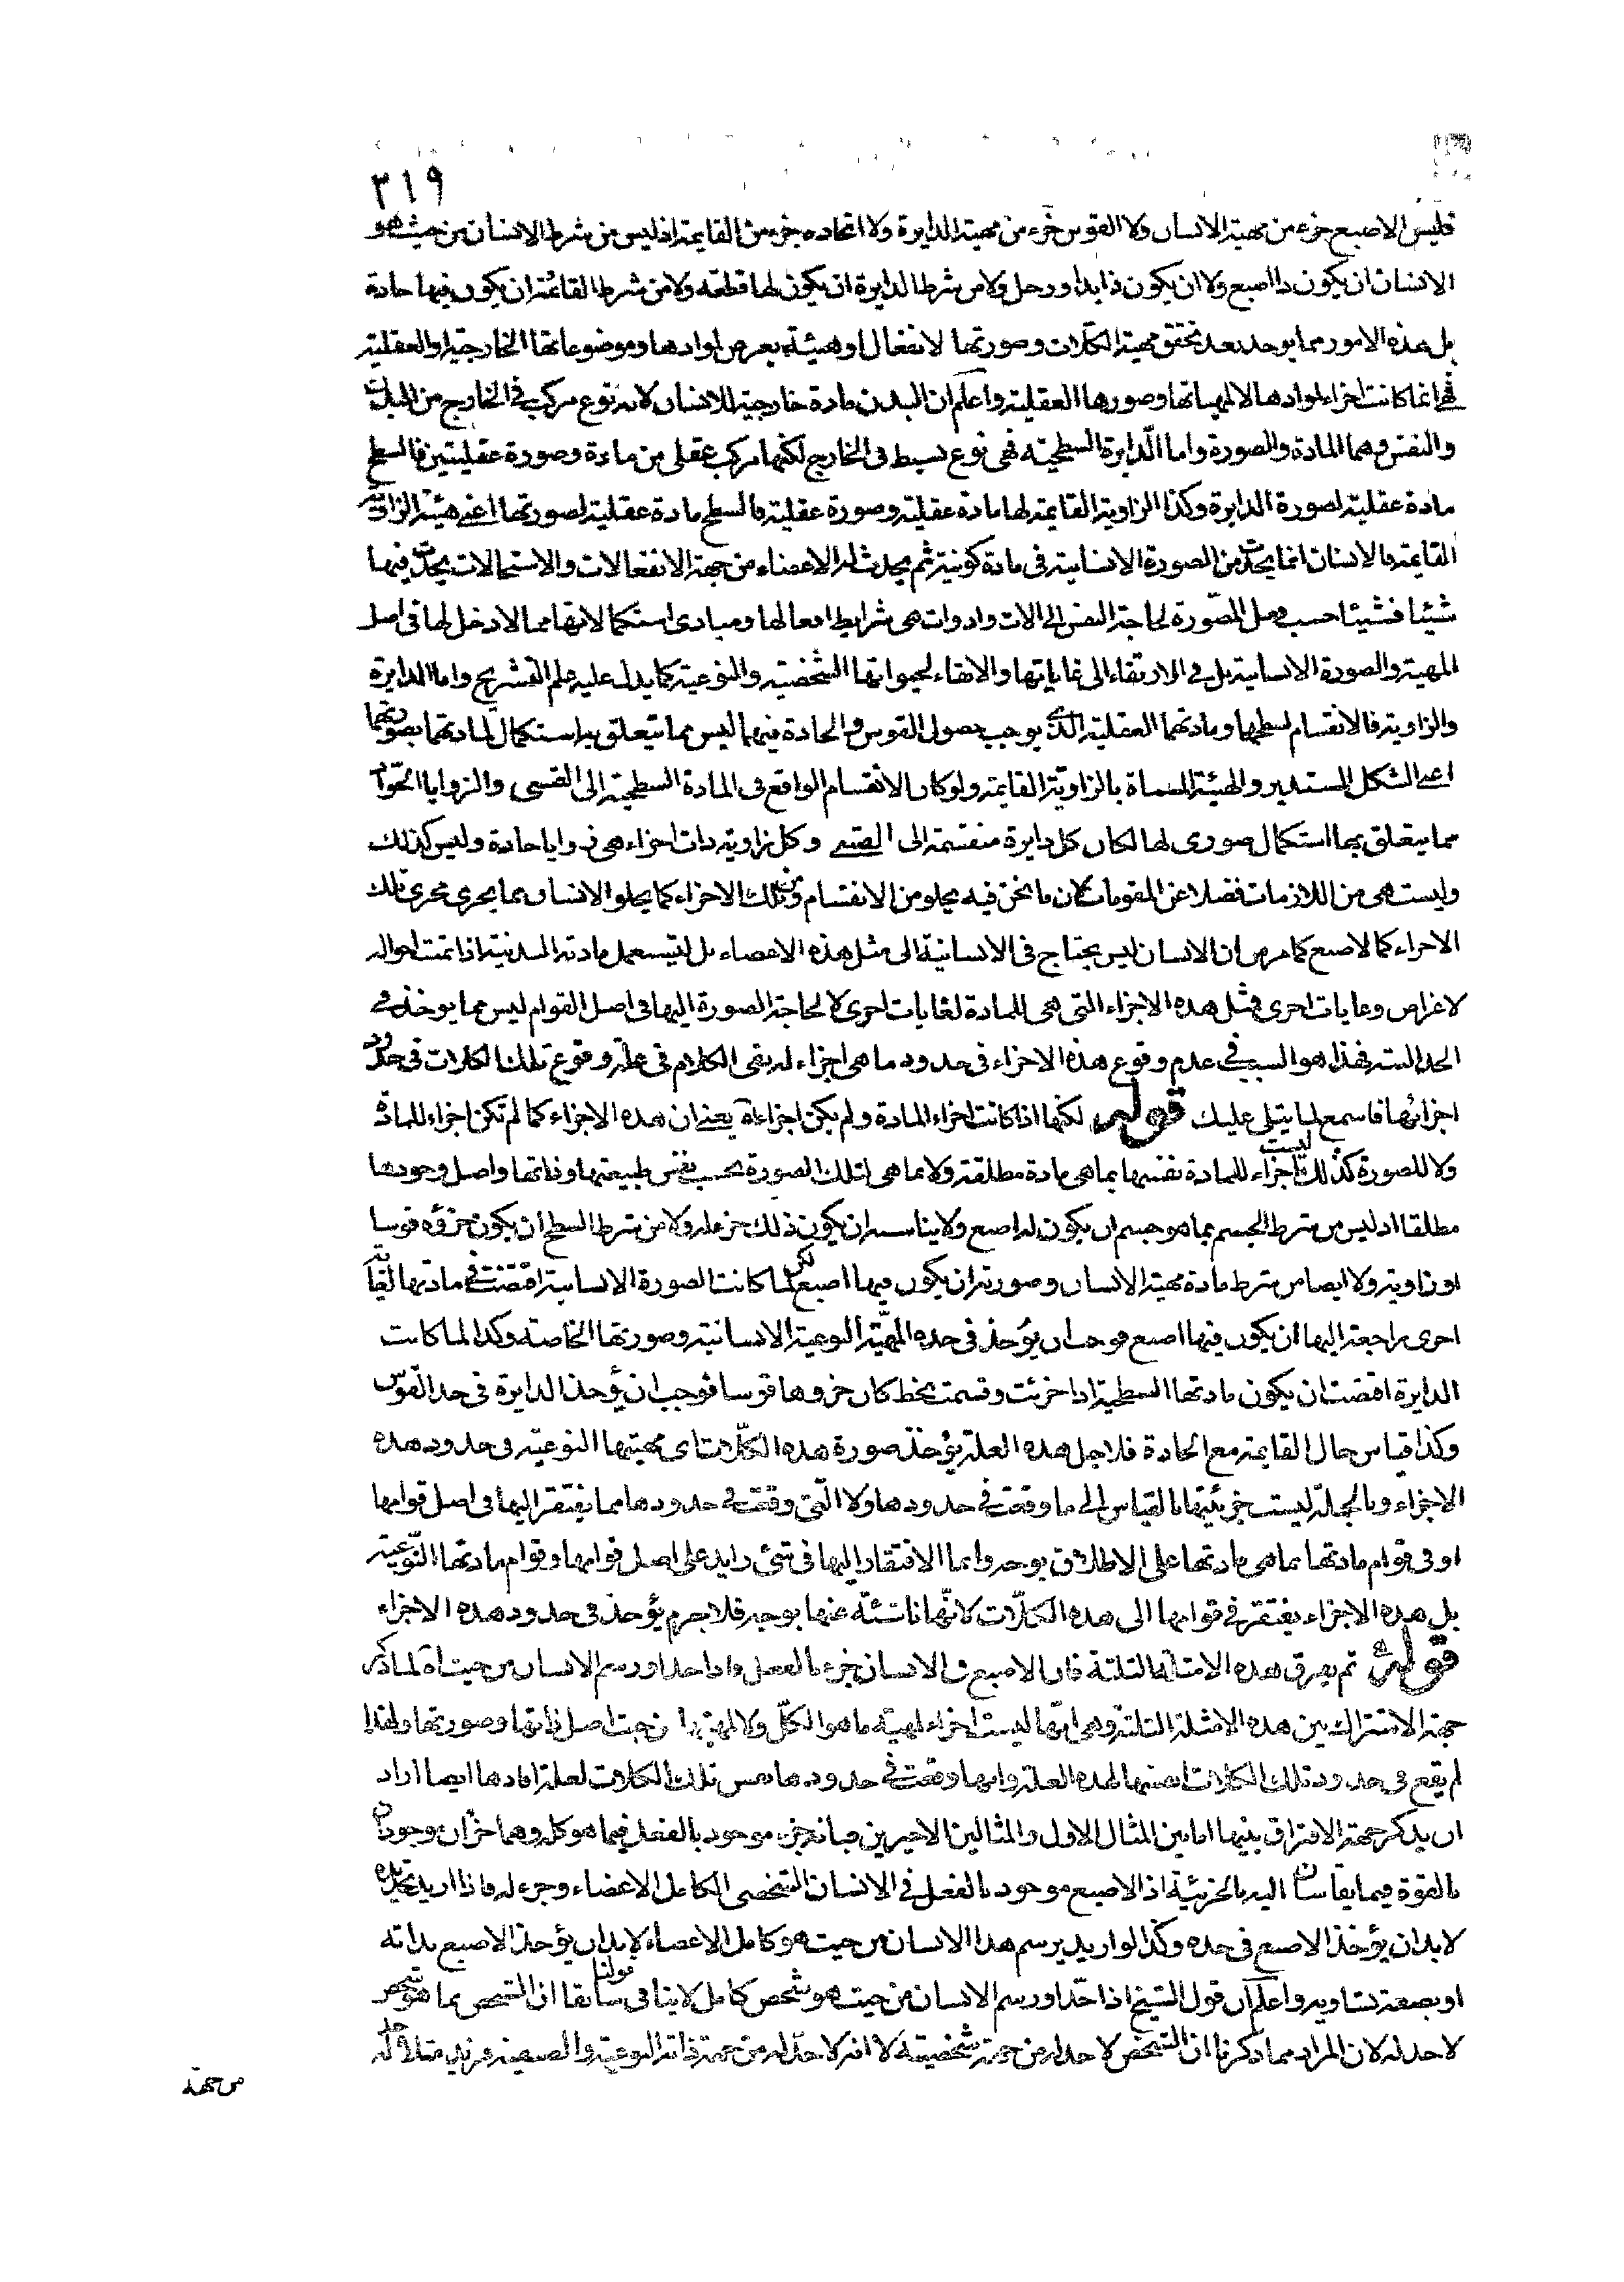 ٣١٩
فليس الاصبع جزء من مهية الانسان ولا القوس جزء من مهية الدايرة ولا الحادة جزء من القايمة اذ ليس من شرط الانسان من حيث هو
الانسان ان يكون ذا اصبع ولا ان يكون ذا يد او رجل ولا من شرط الدايرة ان يكون لها قطعة ولا من شرط القائمة ان يكون فيها حادة
بل هذه الامور مما يوجد بعد تحقق مهية الكلات وصورتها لانفعال او هيئة يعرض لموادها وموضوعاتها الخارجية والعقلية
فهى انما كانت اجزاء لموادها لا لمهياتها وصورها العقلية واعلم ان البدن مادة خارجية للانسان لانه نوع مركب فى الخارج من البدن
والنفس وهما المادة والصورة واما الدايرة السطحية فهى نوع بسيط فى الخارج لكنها مركب عقلى من مادة وصورة عقليتين فالسطح
مادة عقلية لصورة الدايرة وكذا الزاوية القايمة لها مادة عقلية وصورة عقلية فالسطح مادة عقلية لصورتها اعنى هيئة الزاوية
القايمة فالانسان انما يحدث من الصورة الانسانية فى مادة كونية ثم يحدث له الاعضاء من جهة الانفعالات والاستحالات يحدث فيها
شيئا فشيئا حسب فعل المصورة لحاجة النفس الى الات وادوات هى شرايط افعالها ومبادى استكمالاتها مما لا دخل لها فى اصل
المهية والصورة الانسانية بل فى الارتقاء الى غاياتها والابقاء لحيواتها الشخصية والنوعية كما يدل عليه علم التشريح واما الدايرة
والزاوية فالانقسام لسطحها ومادتهما العقلية الذى يوجب حصول القوس والحادة فيهما ليس مما يتعلق به استكمال لمادتهما بصورتهما
اعنى الشكل المستدير والهيئة المسماة بالزاوية القايمة ولو كان الانقسام الواقع فى المادة السطحية الى القسى والزوايا الحواد
مما يتعلق بهما استكمال صورى لها لكان كل دايرة منقسمة الى القسى وكل زاوية ذات اجزاء هى زوايا حادة وليس كذلك
وليست هى من اللازمات فضلا عن المقومات لان ما نحن فيه يخلو من الانقسام وتلك الاجزاء كما يخلو الانسان عما يجرى مجرى تلك
الاجزاء كالاصبع كما مر من ان الانسان ليس يحتاج فى الانسانية الى مثل هذه الاعضاء بل ليستعمل مادته البدنية اذا تمت احواله
لاغراض وغايات اخرى فمثل هذه الاجزاء التى هى للمادة لغايات اخرى لا لحاجة الصورة اليها فى اصل القوام ليس مما يوخذ فى
الحد البتة فهذا هو السبب فى عدم وقوع هذه الاجزاء فى حدود ما هى اجزاء له بقى الكلام فى علة وقوع تلك الكلات فى حدود
اجزائها فاسمع لما يتلى عليك قوله لكنها اذا كانت اجزاء المادة ولم يكن اجزاءه يعنى ان هذه الاجزاء كما لم تكن اجزاء للمادة
ولا للصورة كذلك ليست اجزاء للمادة نفسها بما هى مادة مطلقة ولا بما هى لتلك الصورة بحسب نفس طبيعتها وذاتها واصل وجودها
مطلقا اذ ليس من شرط الجسم بما هو جسم ان يكون له اصبع ولا يناسبه ان يكون ذلك جزء له ولا من شرط السطح ان يكون جزؤه قوسا
او زاوية ولا ايضا من شرط مادة مهية الانسان وصورته ان يكون فيها اصبع لكن لما كانت الصورة الانسانية اقتضت فى مادتها لغاية
اخرى راجعة اليها ان يكون فيها اصبع فوجب ان يؤخذ فى حده المهية النوعية الانسانية وصورتها الخاصة وكذا لما كانت
الدايرة اقتضت ان يكون مادتها السطحية اذا جزئت وقسمت بخط كان جزوها قوسا فوجب ان يؤخذ الدايرة فى حد القوس
وكذا قياس حال القايمة مع الحادة فلاجل هذه العلة يؤخذ صورة هذه الكلات اى مهيتها النوعية فى حدود هذه
الاجزاء وبالجملة ليست جزئيتها بالقياس الى ما وقعت فى حدودها ولا التى وقعت فى حدودها مما يفتقر اليها فى اصل قوامها
او فى قوام مادتها بما هى مادتها على الاطلاق بوجه وانما الافتقار اليها فى شئ زايد على اصل قوامها وقوام مادتها النوعية
بل هذه الاجزاء يفتقر فى قوامها الى هذه الكلات كانها ناشئة عنها بوجه فلا جرم يؤخذ فى حدود هذه الاجزاء
قوله ثم يفرق هذه الامثلة الثلثة فان الاصبع فى الانسان جزء بالفعل واذا حد او رسم الانسان من حيث اه لما ذكر
جهة الاشتراك بين هذه الامثلة الثلثة وهى انها ليست اجزاء لمهية ما هو الكل ولا لمهيتها من حيث اصل ذاتها وصورتها ولهذا
لم يقع فى حدود تلك الكلات انفسها لهذه العلة وانها وقعت فى حدودها نفس تلك الكلات لعلة افادها ايضا اراد
ان يذكر جهة الافتراق بينها اما بين المثال الاول والمثالين الاخيرين فبانه جزء موجود بالفعل فيما هو كله وهما جزان وجودهما
بالقوة فيما يقاسان اليه بالجزئية اذ الاصبع موجود بالفعل فى الانسان الشخصى الكامل الاعضاء وجزء له فاذا اريد تحديده
لا بد ان يؤخذ الاصبع فى حده وكذا لو اريد يرسم هذا الانسان من حيث هو كامل الاعضاء لا بد ان يؤخذ الاصبع بذاته
او بصفة تساويه واعلم ان قول الشيخ اذا حد او رسم الانسان من حيث هو شخص كامل لا ينافى قولنا سابقا ان الشخص بما هو شخص
لا حد له لان المراد مما ذكرنا ان الشخص لا حد له من جهة شخصيته لا انه لا حد له من جهة ذاته النوعية والصنفية فزيد مثلا له
من جهة